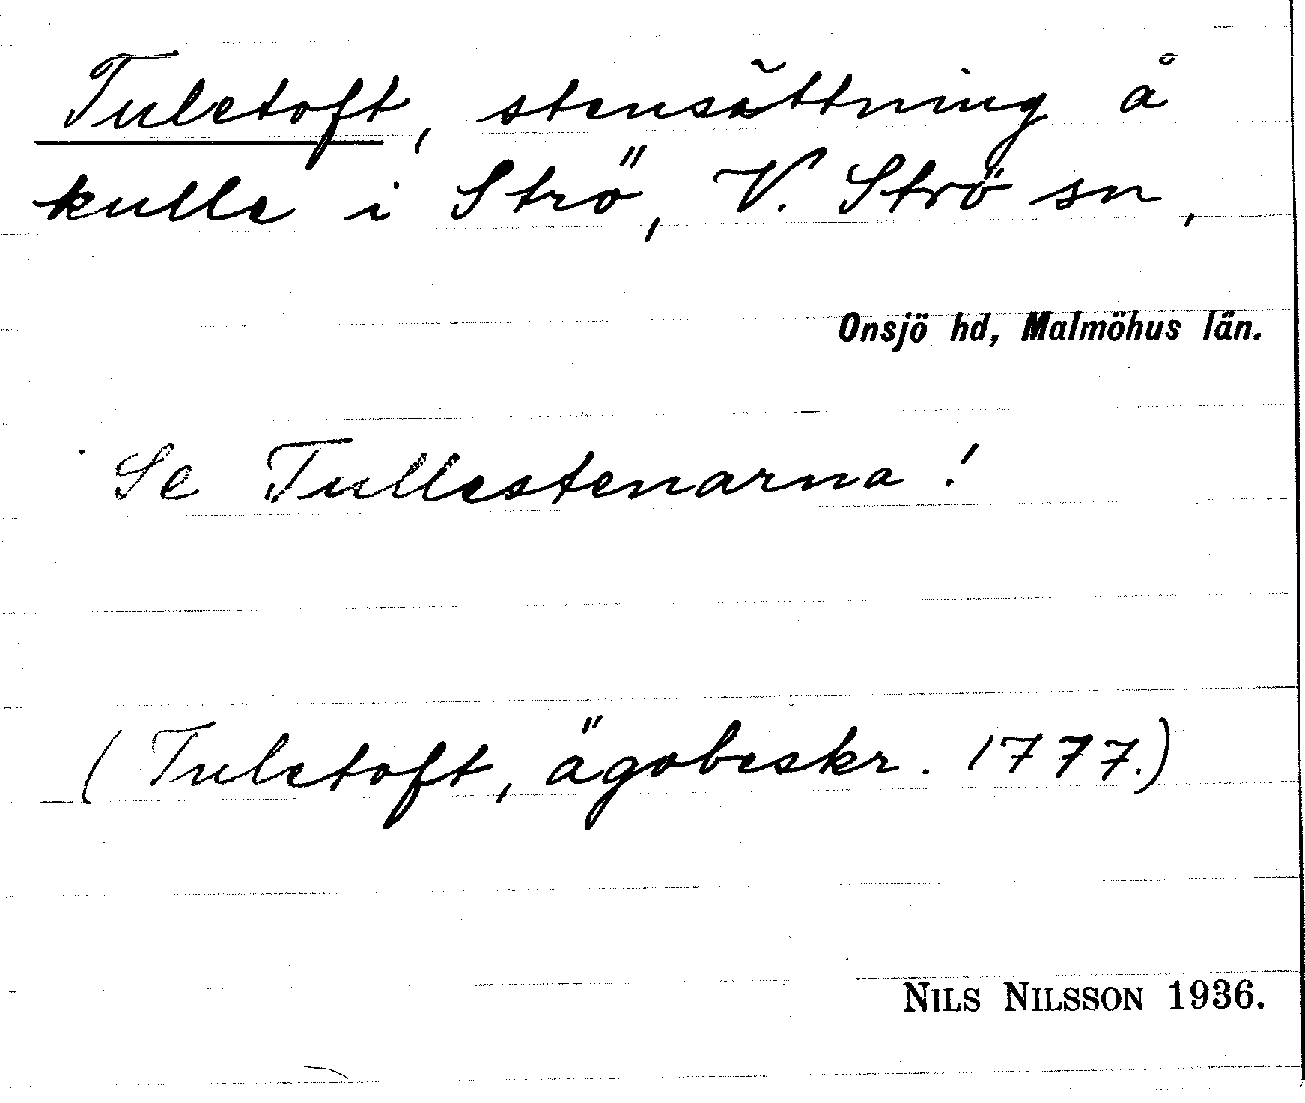 Tuletoft, stensättning å
kulle i Strö, V. Strö sn,
Onsjö hd, Malmöhus län.
Se Tullestenarna!
(Tuletoft, ägobeskr. 1777.)
NILS NILSSON 1936.